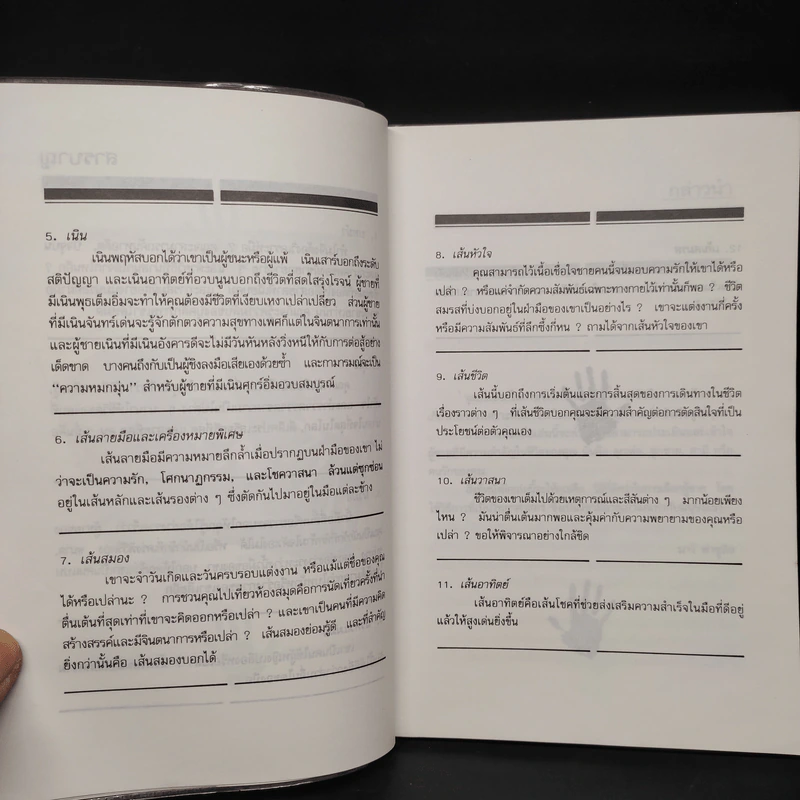 5. เนิน
เนินพฤหัสบอกได้ว่าเขาเป็นผู้ชนะหรือผู้แพ้ เนินเสาร์บอกถึงระดับ
สติปัญญา และเนินอาทิตย์ที่อวบนูนบอกถึงชีวิตที่สดใสรุ่งโรจน์ ผู้ชายที่
มีเนินพุธเต็มอิ่มจะทำให้คุณต้องมีชีวิตที่เงียบเหงาเปล่าเปลี่ยว ส่วนผู้ชาย
ที่มีเนินจันทร์เด่นจะรู้จักตักตวงความสุขทางเพศก็แต่ในจินตนาการเท่านั้น
และผู้ชายเนินที่มีเนินอังคารดีจะไม่มีวันหันหลังวิ่งหนีให้กับการต่อสู้อย่าง
เด็ดขาด บางคนถึงกับเป็นผู้ชิงลงมือเสียเองด้วยซ้ำ และกามารมณ์จะเป็น
“ความหมกมุ่น” สำหรับผู้ชายที่มีเนินศุกร์อิ่มอวบสมบูรณ์
6. เส้นลายมือและเครื่องหมายพิเศษ
เส้นลายมือมีความหมายลึกล้ำเมื่อปรากฏบนฝ่ามือของเขา ไม่
ว่าจะเป็นความรัก, โศกนาฏกรรม, และโชควาสนา ล้วนแต่ซุกซ่อน
อยู่ในเส้นหลักและเส้นรองต่าง ๆ ซึ่งตัดกันไปมาอยู่ในมือแต่ละข้าง
7. เส้นสมอง
เขาจะจำวันเกิดและวันครบรอบแต่งงาน หรือแม้แต่ชื่อของคุณ
ได้หรือเปล่านะ ? การชวนคุณไปเที่ยวห้องสมุดคือการนัดเที่ยวครั้งที่น่า
ตื่นเต้นที่สุดเท่าที่เขาจะคิดออกหรือเปล่า ? และเขาเป็นคนที่มีความคิด
สร้างสรรค์และมีจินตนาการหรือเปล่า ? เส้นสมองย่อมรู้ดี และที่สำคัญ
ยิ่งกว่านั้นคือ เส้นสมองบอกได้
8. เส้นหัวใจ
คุณสามารถไว้เนื้อเชื่อใจชายคนนี้จนมอบความรักให้เขาได้หรือ
เปล่า ? หรือแค่จำกัดความสัมพันธ์เฉพาะทางกายไว้เท่านั้นก็พอ ? ชีวิต
สมรสที่บ่งบอกอยู่ในฝ่ามือของเขาเป็นอย่างไร ? เขาจะแต่งงานกี่ครั้ง
หรือมีความสัมพันธ์ที่ลึกซึ้งกี่หน ? ถามได้จากเส้นหัวใจของเขา
9. เส้นชีวิต
เส้นนี้บอกถึงการเริ่มต้นและการสิ้นสุดของการเดินทางในชีวิต
เรื่องราวต่าง ๆ ที่เส้นชีวิตบอกคุณจะมีความสำคัญต่อการตัดสินใจที่เป็น
ประโยชน์ต่อตัวคุณเอง
10. เส้นวาสนา
ชีวิตของเขาเต็มไปด้วยเหตุการณ์และสีสันต่าง ๆ มากน้อยเพียง
ไหน ? มันน่าตื่นเต้นมากพอและคุ้มค่ากับความพยายามของคุณหรือ
เปล่า ? ขอให้พิจารณาอย่างใกล้ชิด
11. เส้นอาทิตย์
เส้นอาทิตย์คือเส้นโชคที่ช่วยส่งเสริมความสำเร็จในมือที่ดีอยู่
แล้วให้สูงเด่นยิ่งขึ้น